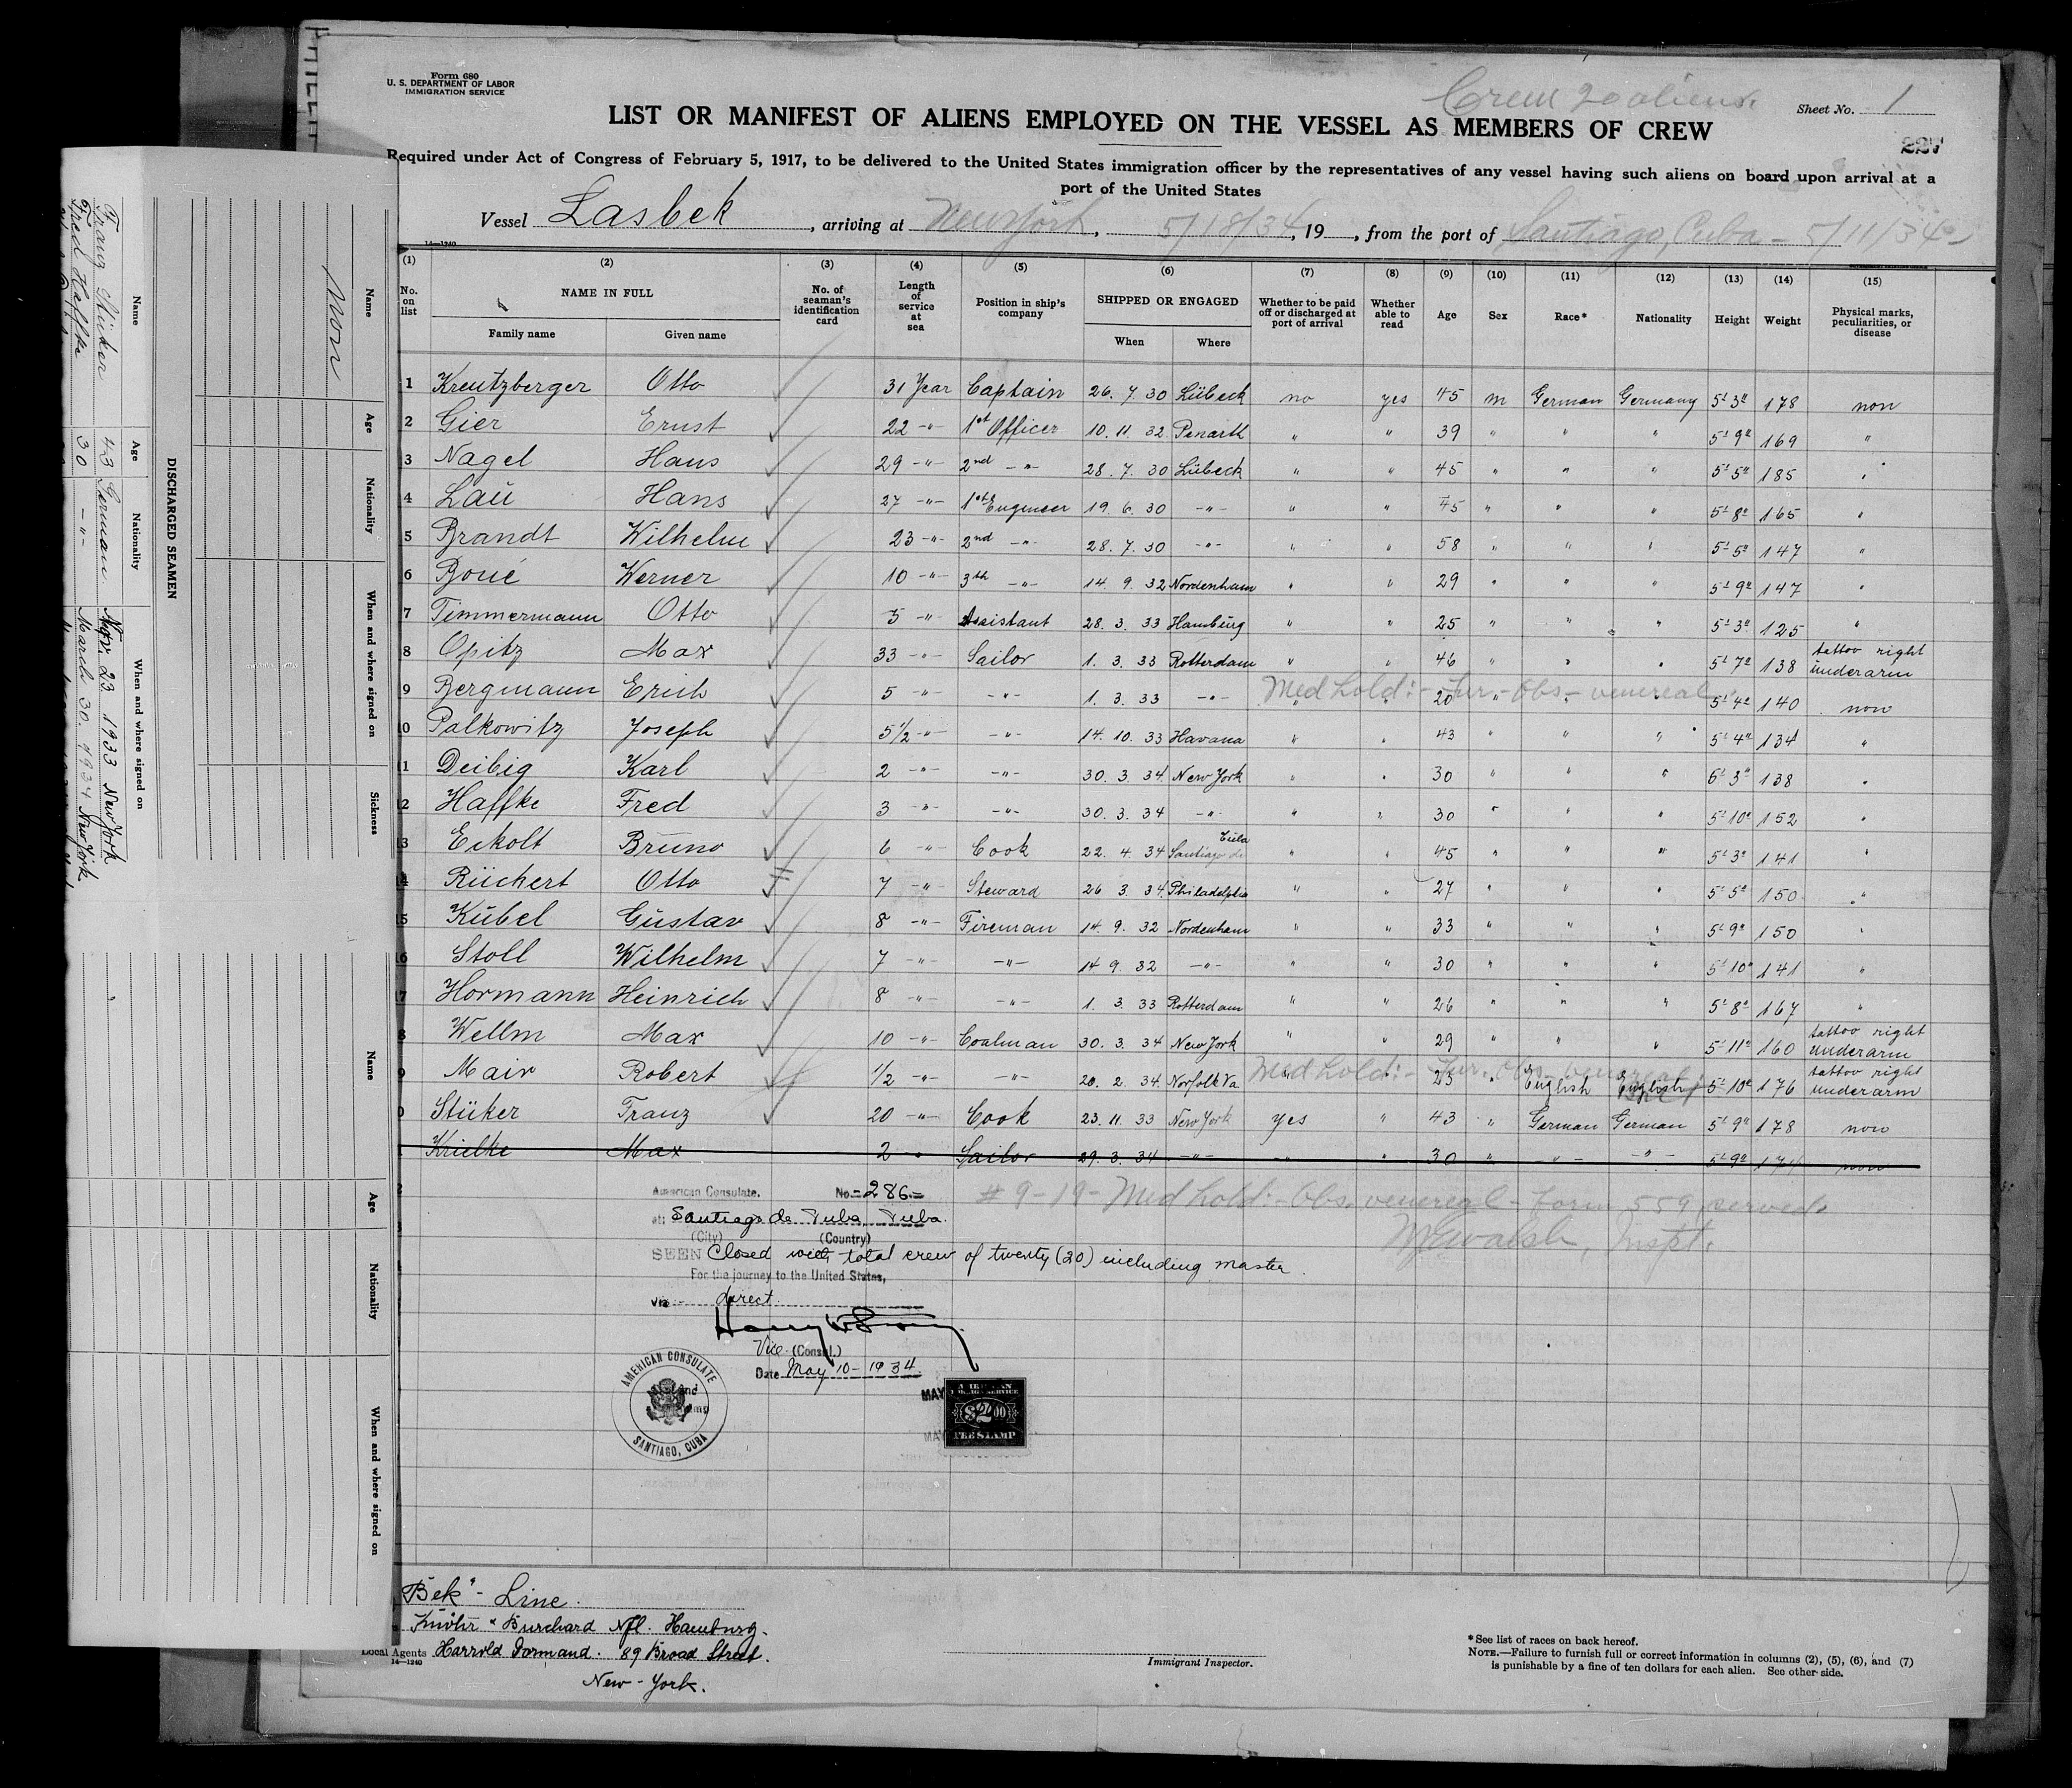 Form 680
U. S. DEPARTMENT OF LABOR
IMMIGRATION SERVICE
Crew 20 aliens.
Sheet No. 1
LIST OR MANIFEST OF ALIENS EMPLOYED ON THE VESSEL AS MEMBERS OF CREW
227
Required under Act of Congress of February 5, 1917, to be delivered to the United States immigration officer by the representatives of any vessel having such aliens on board upon arrival at a
port of the United States
Vessel Lasbek, arriving at New York, 5/18/34, 19 , from the port of Santiago, Cuba - 5/11/34
14—1240
(1) (2) (3) (4) (5) (6) (7) (8) (9) (10) (11) (12) (13) (14) (15)
No. on list NAME IN FULL Family name Given name No. of seaman's identification card Length of service at sea Position in ship's company SHIPPED OR ENGAGED When Where Whether to be paid off or discharged at port of arrival Whether able to read Age Sex Race* Nationality Height Weight Physical marks, peculiarities, or disease
1 Kreutzberger Otto 31 Year Captain 26. 7. 30 Lübeck no yes 45 m German Germany 5' 3" 178 non
2 Gier Ernst 22 -"- 1st Officer 10. 11. 32. Penarth " " 39 " " " 5' 9" 169 "
3 Nagel Hans 29 -"- 2nd -"- 28. 7. 30 Lübeck " " 45 " " " 5' 5" 185 "
4 Laü Hans 27 -"- 1st Engineer 19. 6. 30 -"- " " 45 " " " 5' 8" 165 "
5 Brandt Wilhelm 23 -"- 2nd -"- 28. 7. 30 -"- " " 58 " " " 5' 5" 147 "
6 Boué Werner 10 -"- 3th -"- 14. 9. 32 Nordenham " " 29 " " " 5' 9" 147 "
7 Timmermann Otto 5 -"- Assistant 28. 3. 33 Hamburg " " 25 " " " 5' 3" 125 "
8 Opitz Max 33 -"- Sailor 1. 3. 33 Rotterdam " " 46 " " " 5' 7" 138 tattoo right underarm
9 Bergmann Erich 5 -"- -"- 1. 3. 33 -"- Med hold:- Fur. Obs - venereal 20 " " " 5' 4" 140 non
10 Palkowitz Joseph 5 1/2 -"- -"- 14. 10. 33 Havana " " 43 " " " 5' 4" 134 "
11 Deibig Karl 2 -"- -"- 30. 3. 34 New York " " 30 " " " 6' 3" 138 "
12 Haffke Fred 3 -"- -"- 30. 3. 34 -"- " " 30 " " " 5' 10" 152 "
13 Eckolt Bruno 6 -"- Cook 22. 4. 34 Santiago de Cuba " " 45 " " " 5' 3" 141 "
14 Rüchert Otto 7 -"- Steward 26 3. 34. Philadelphia " " 27 " " " 5' 5" 150 "
15 Kübel Gustav 8 -"- Fireman 14. 9. 32 Nordenham " " 33 " " " 5' 9" 150 "
16 Stoll Wilhelm 7 -"- -"- 14 9. 32 -"- " " 30 " " " 5' 10" 141 "
17 Hormann Heinrich 8 -"- -"- 1. 3. 33 Rotterdam " " 26 " " " 5' 8" 167 "
18 Wellm Max 10 -"- Coalman 30. 3. 34 New York " " 29 " " " 5' 11" 160 tattoo right underarm
19 Mair Robert 1/2 -"- -"- 20. 2. 34. Norfolk Va Med hold:- Fur. Obs - venereal 23 " English English 5' 10" 176 tattoo right underarm
20 Stüker Franz 20 -"- Cook 23. 11. 33 New York yes " 43 " German German 5' 9" 178 non
Krielke Max 2 Sailor 29. 3. 34 -"- " " 30 " -"- -"- 5' 9" 174 non
American Consulate. No. -286-
at: Santiago de Cuba, Cuba.
(City) (Country)
# 9-19- Med hold:- Obs. venereal - Form 559 served.
Inspt.
SEEN Closed with total crew of twenty (20) including master
For the journey to the United States,
via direct
Vice (Consul.)
Date May 10 - 1934
AMERICAN CONSULATE
SANTIAGO, CUBA
MAY
AMERICAN
FOREIGN SERVICE
$2.00
FEE STAMP
"Bek" - Line.
Knöhr & Burchard Nfl. Hamburg.
Local Agents Harrold Dormand. 89 Broad Street.
New - York.
14—1240
Immigrant Inspector.
*See list of races on back hereof.
NOTE.—Failure to furnish full or correct information in columns (2), (5), (6), and (7)
is punishable by a fine of ten dollars for each alien. See other side.
DISCHARGED SEAMEN
Name Age Nationality When and where signed on
Franz Stüker 43 German Nov. 23 1933 New York
Fred Haffke 30 -"- March 30. 1934 New York
Name Age Nationality When and where signed on Sickness
non
Name Age Nationality When and where signed on